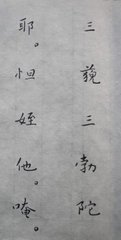 三藐三勃陀
耶。怛姪他。唵。